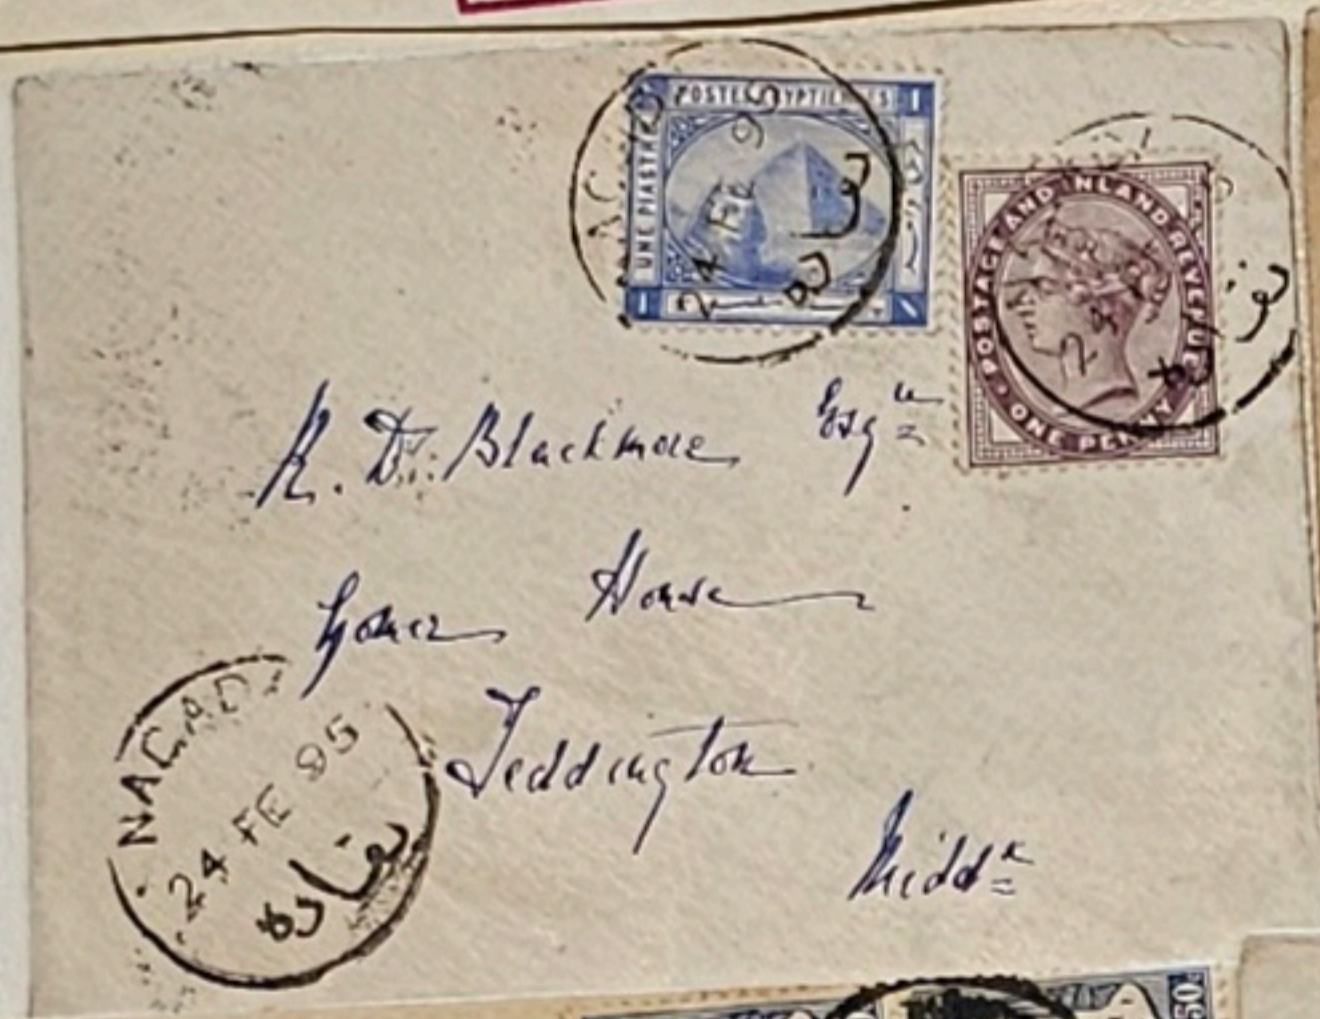 POSTES EGYPTIENNES
UNE PIASTRE
1
1
24 FE 95
نقاده
POSTAGE AND INLAND REVENUE
ONE PENNY
24
نقاده
R. D. Blackmore Esqre
Gomer House
Teddington
Middx
NAGADA
24 FE 95
نقاده
50